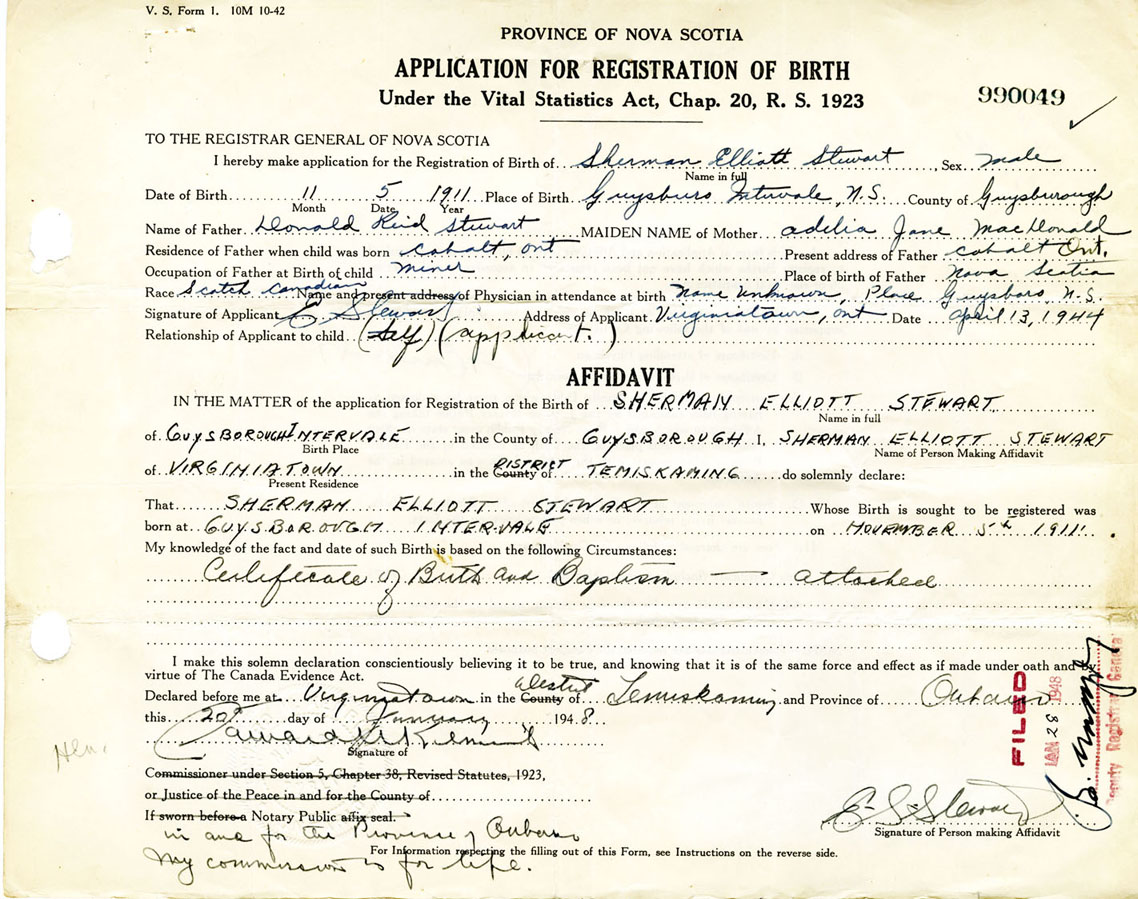 V. S. Form 1. 10M 10-42
PROVINCE OF NOVA SCOTIA
APPLICATION FOR REGISTRATION OF BIRTH
Under the Vital Statistics Act, Chap. 20, R. S. 1923
990049
TO THE REGISTRAR GENERAL OF NOVA SCOTIA
I hereby make application for the Registration of Birth of Sherman Elliott Stewart, Sex male
Name in full
Date of Birth 11 5 1911 Place of Birth Guysboro Intervale, N.S. County of Guysborough
Month Date Year
Name of Father Donald Reid Stewart MAIDEN NAME of Mother adelia Jane MacDonald
Residence of Father when child was born cobalt, ont Present address of Father cobalt Ont.
Occupation of Father at Birth of child miner Place of birth of Father Nova Scotia
Race Scotch Canadian Name and present address of Physician in attendance at birth Name unknown, Place Guysboro N.S.
Signature of Applicant E. Stewart Address of Applicant Virginiatown, ont Date april 13, 1944
Relationship of Applicant to child (Self) (applicant.)
AFFIDAVIT
IN THE MATTER of the application for Registration of the Birth of SHERMAN ELLIOTT STEWART
Name in full
of GUYSBOROUGH INTERVALE in the County of GUYSBOROUGH I, SHERMAN ELLIOTT STEWART
Birth Place Name of Person Making Affidavit
of VIRGINIATOWN in the County DISTRICT of TEMISKAMING do solemnly declare:
Present Residence
That SHERMAN ELLIOTT STEWART Whose Birth is sought to be registered was
born at GUYSBOROUGH INTERVALE on NOVEMBER 5th 1911.
My knowledge of the fact and date of such Birth is based on the following Circumstances:
Certificate of Birth and Baptism — attached
I make this solemn declaration conscientiously believing it to be true, and knowing that it is of the same force and effect as if made under oath and by
virtue of The Canada Evidence Act.
Declared before me at Virginiatown in the County District of Temiskaming and Province of Ontario
this 20th day of January 1948
Signature of
Commissioner under Section 5, Chapter 38, Revised Statutes, 1923,
or Justice of the Peace in and for the County of
If sworn before a Notary Public affix seal.
in and for the Province of Ontario
My commission is for life.
E. S. Stewart
Signature of Person making Affidavit
For Information respecting the filling out of this Form, see Instructions on the reverse side.
FILED
JAN 28 1948
Deputy Registrar General